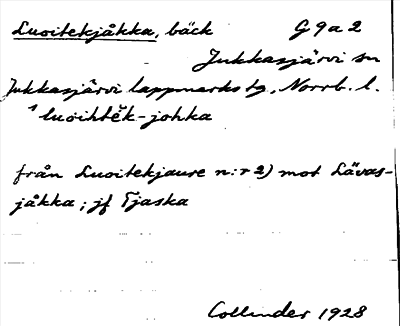 Luoitekjåkka, bäck G 9 a 2
Jukkasjärvi sn
Jukkasjärvi lappmarks tg, Norrb. l.
luoihtěk-johka
från Luoitekjaure n:r 2) mot Lävas-
jåkka; jf Tjaska
Collinder 1928